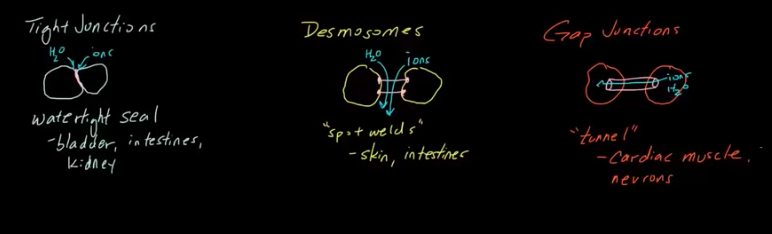 Tight Junctions
H2O ions
watertight seal
-bladder, intestines,
kidney
Desmosomes
H2O ions
"spot welds"
-skin, intestines
Gap Junctions
ions
H2O
"tunnel"
-cardiac muscle,
neurons